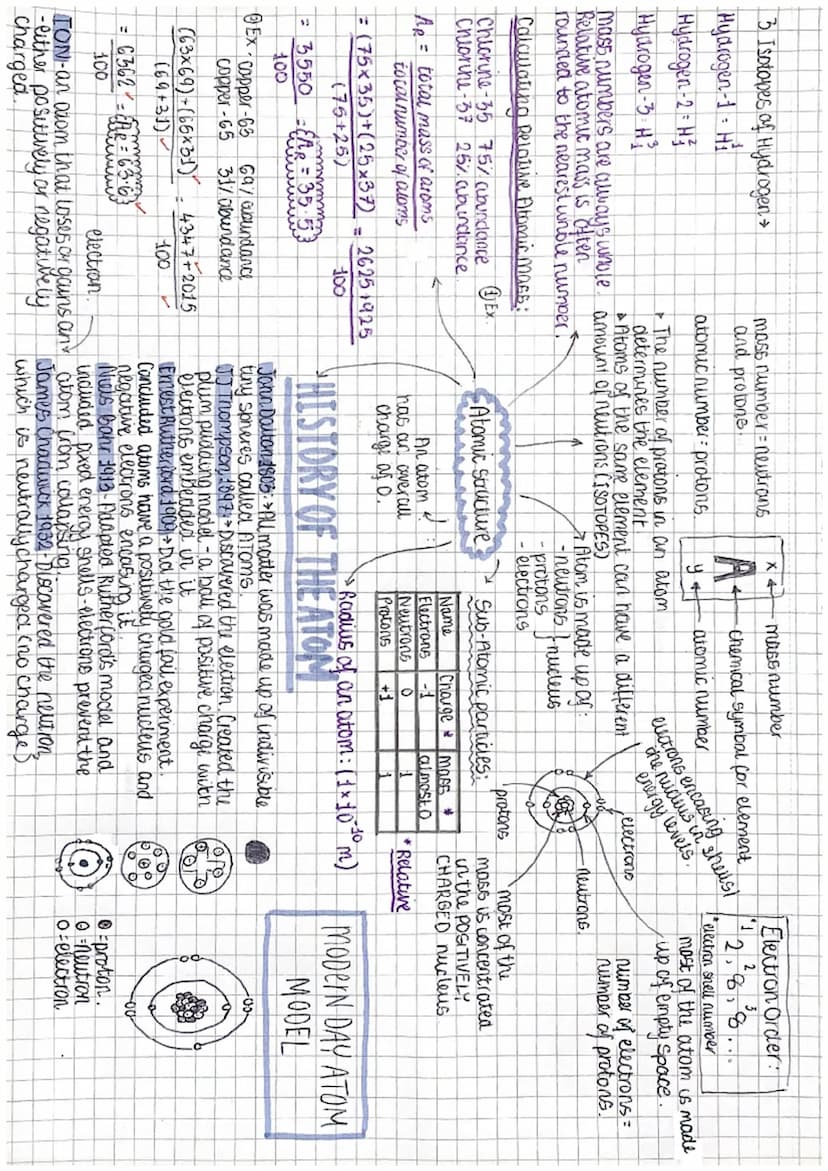 3 Isotopes of Hydrogen →
Hydrogen-1 = H 1 1
Hydrogen-2 = H 2 1
Hydrogen-3 = H 3 1
Mass numbers are always whole.
Relative atomic mass is often
rounded to the nearest whole number.
Calculating Relative Atomic Mass:
Chlorine-35 75% abundance ① Ex.
Chlorine-37 25% abundance.
AR = total mass of atoms
total number of atoms
= (75×35)+(25×37) = 2625+925
(75+25) 100
= 3550 = AR = 35.5
100
② Ex - copper-63 69% abundance
copper-65 31% abundance
(63×69)+(65×31) = 4347+2015
(69+31) 100
= 6362 = AR = 63.6
100
ION - an atom that loses or gains an electron.
- either positively or negatively
charged.
mass number = neutrons
and protons.
atomic number = protons
x ← mass number
A ← chemical symbol for element
y ← atomic number
▸ The number of protons in an atom
determines the element
▸ Atoms of the same element can have a different
amount of neutrons (ISOTOPES)
→ Atom is made up of:
- neutrons } nucleus
- protons
- electrons
electrons encasing
the nucleus in shells/
energy levels.
electrons
neutrons.
protons
Electron Order:
*1 2 3
2, 8, 8...
*electron shell number
most of the atom is made
up of empty space.
number of electrons =
number of protons.
most of the
mass is concentrated
in the POSITIVELY
CHARGED nucleus
Atomic structure
An atom
has an overall
charge of 0.
Sub-Atomic particles:
Name Charge * mass *
Electrons -1 almost 0
Neutrons 0 1
Protons +1 1
* Relative
Radius of an atom: (1×10⁻¹⁰ m)
HISTORY OF THE ATOM
John Dalton 1803: → All matter was made up of indivisible
tiny spheres called ATOMS.
JJ Thompson 1897 → Discovered the electron. Created the
plum pudding model - a ball of positive charge with
electrons embedded in it
Ernest Rutherford 1909 → Did the gold foil experiment.
Concluded atoms have a positively charged nucleus and
negative electrons encasing it.
Niels Bohr 1913 - Adapted Rutherford's model and
included fixed energy shells - electrons prevent the
atom from collapsing.
James Chadwick 1932 Discovered the neutron,
which is neutrally charged (no charge)
MODERN DAY ATOM
MODEL
= proton.
= neutron
= electron